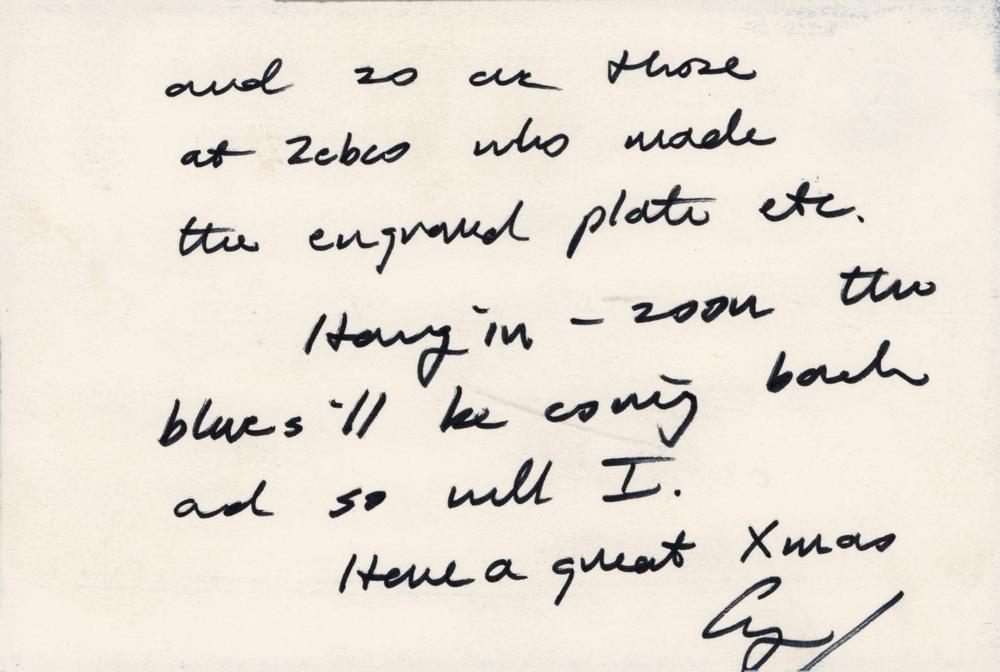 and so are those
at Zebco who made
the engraved plate etc.
Hang in - soon the
blues'll be coming back
and so will I.
Have a great Xmas